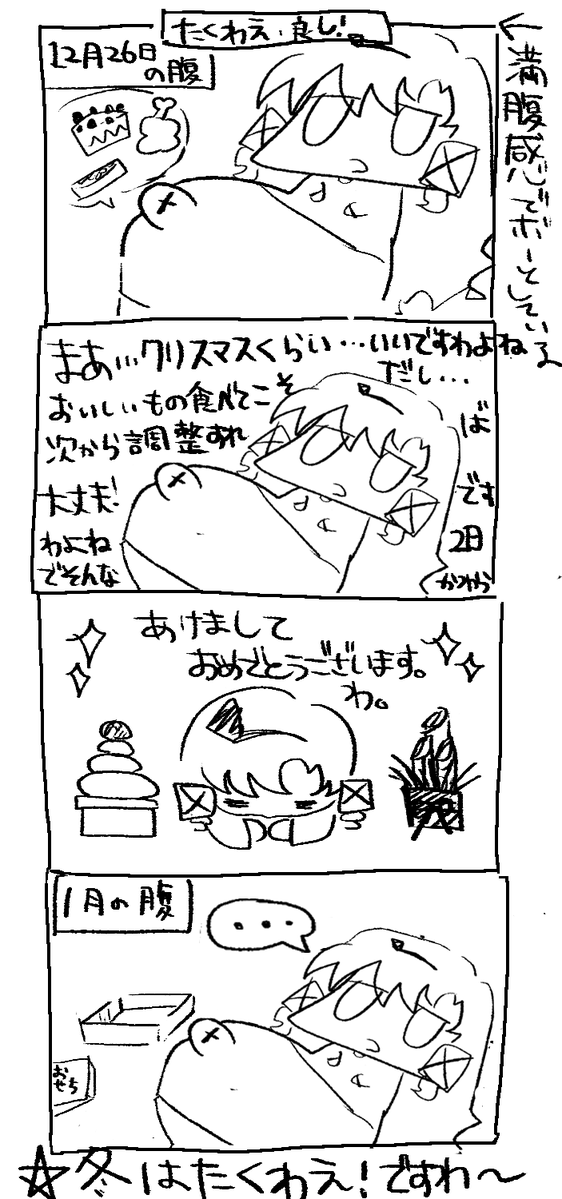 たくわえ、良し!
12月26日
の腹
←満腹感でボーとしている
まあ…クリスマスくらい…いいですわよね
だし…
おいしいもの食べてこそ
次から調整すれ
ば
大丈夫!
です
わよね
2日
でそんな
かそから
あけまして
おめでとうございます。
わ。
1月の腹
・・・
おせち
☆冬はたくわえ!ですわ〜